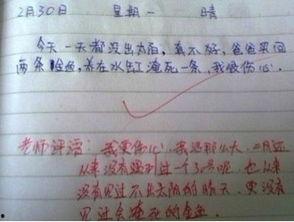 2月30日 星期一 晴
今天一天都没出太阳,真不好,爸爸买回
两条金鱼,养在水缸淹死一条,我很伤心。
老师评语:我更伤心,我活那么大,二月还
从来没有遇到过一个30号呢,也从来
没有见过不出太阳的晴天,更没有
见过会淹死的金鱼。